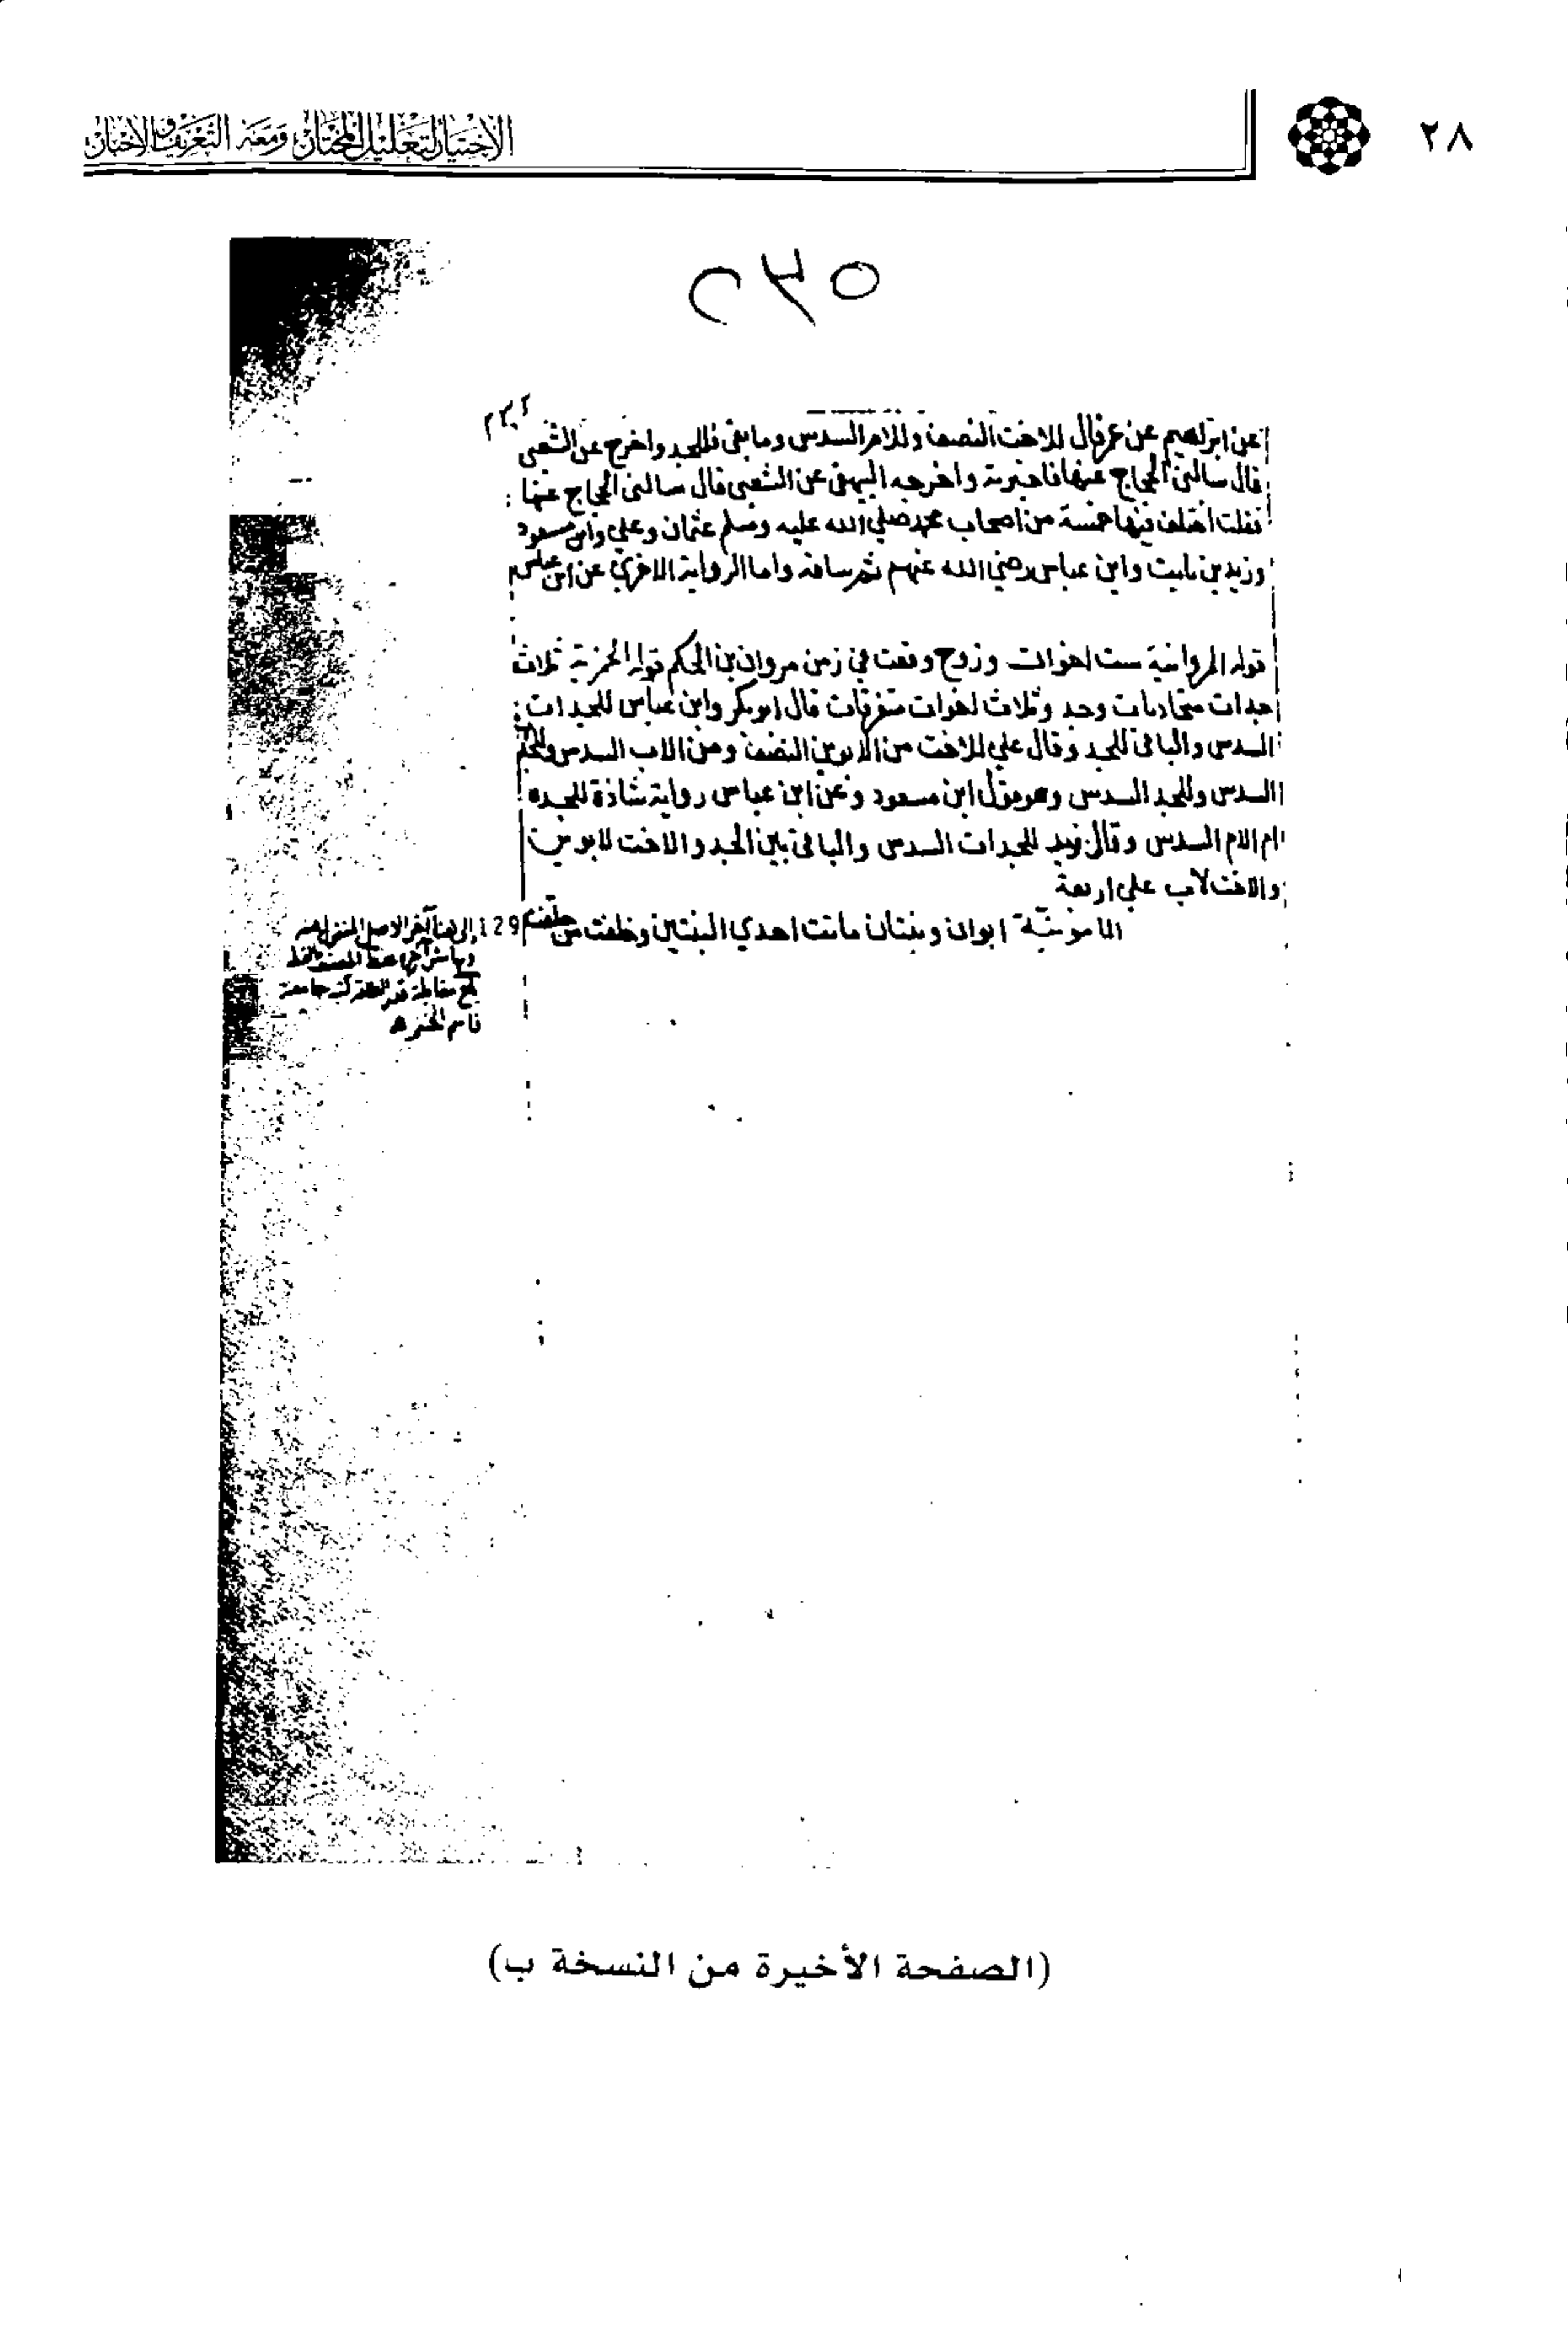 ٢٨
الاختيار لتعليل المختار ومعه التعريف والاخبار
عن ابراهيم عن عمر قال للاخت النصف وللام السدس وما بقى فللجد واخرج عن الشعبى
قال سالنى الحجاج عنها فاخبرته واخرجه البيهقى عن الشعبى قال سالنى الحجاج عنها
فقلت اختلف فيها خمسة من اصحاب محمد صلي الله عليه وسلم عثمان وعلي وابن مسعود
وزيد بن ثابت وابن عباس رضي الله عنهم ثم ساقه واما الرواية الاخري عن ابن عباس
قوله المروانية ست اخوات وزوج وقعت في زمن مروان بن الحكم قوله الحمزية ثلاث
جدات متحاذيات وجد وثلاث اخوات متفرقات قال ابو بكر وابن عباس للجدات
السدس والباقى للجد وقال علي للاخت من الابوين النصف ومن الاب السدس
السدس وللجد السدس وهو قول ابن مسعود وعن ابن عباس رواية شاذة للجده
ام الام السدس وقال زيد للجدات السدس والباقى بين الجد والاخت لابوين
والاخت لاب علي اربعة
المامونية ابوان وبنتان ماتت احدي البنتين وخلفت من خلفت
129 إلى هنا آخر الاصل
قاسم الحنفي
(الصفحة الأخيرة من النسخة ب)